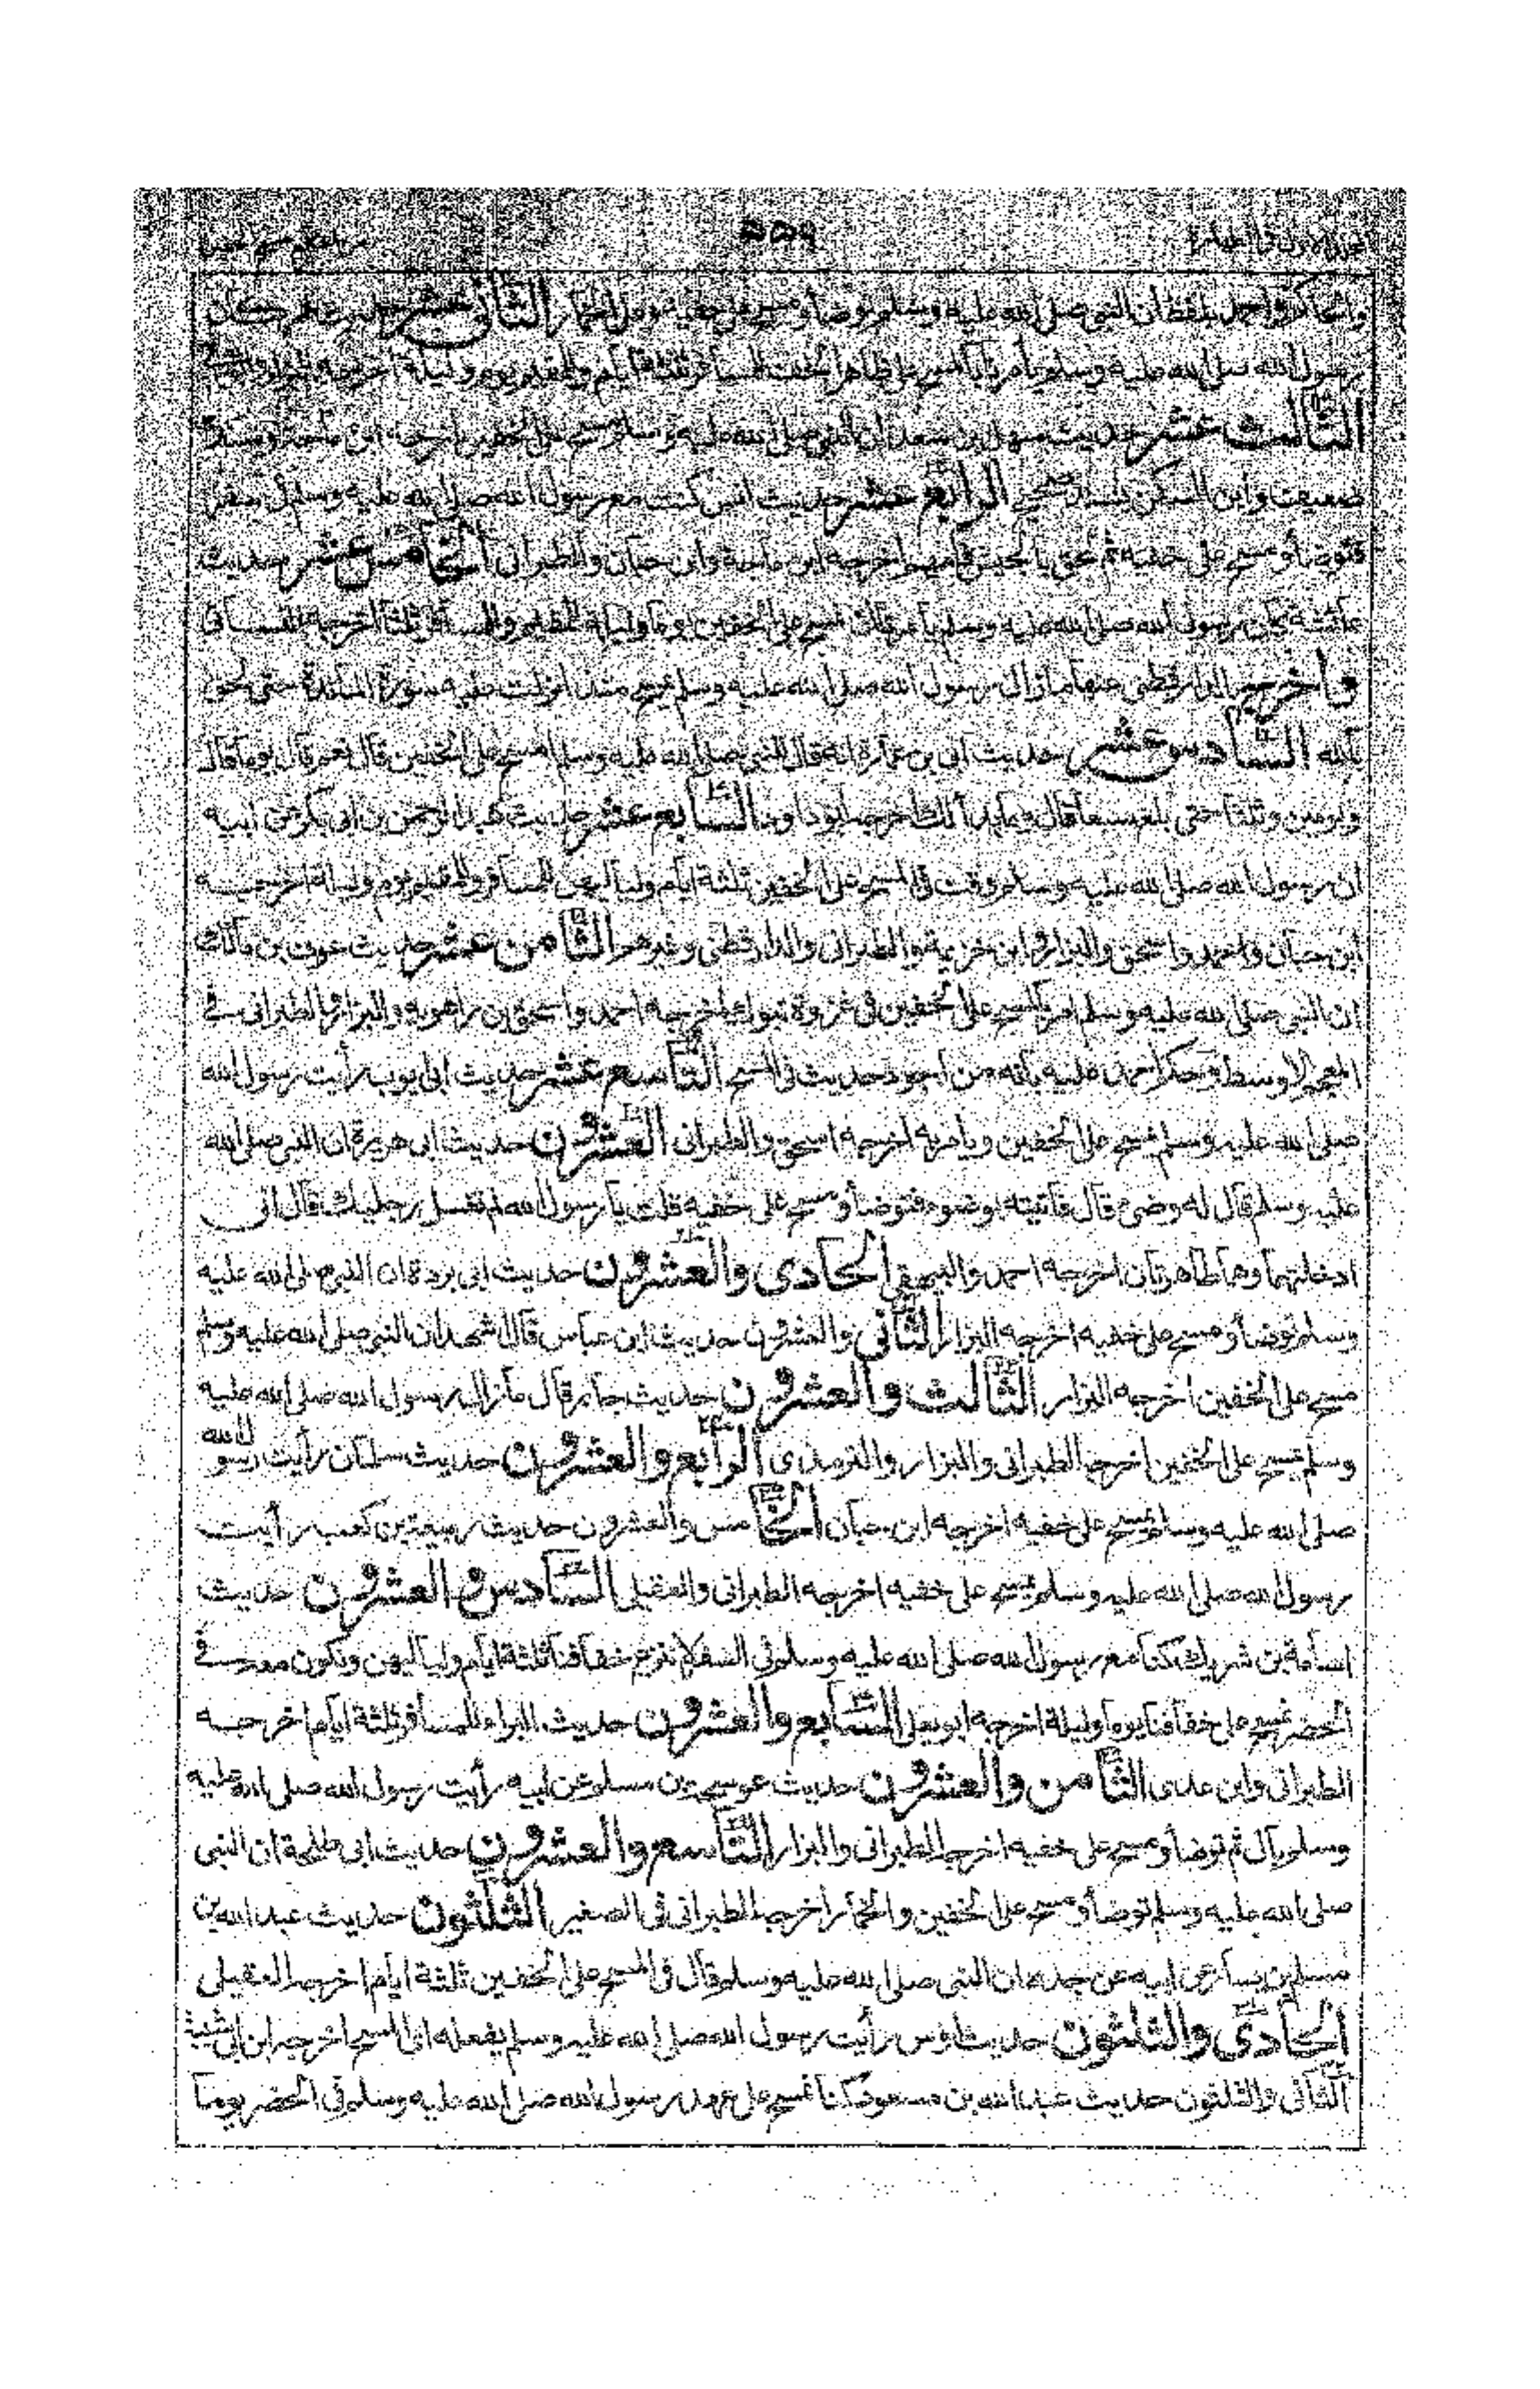 ۵۵۹
والحاكم واحمد بلفظ ان النبي صلى الله عليه وسلم توضأ ومسح على خفيه وعلى الخمار الثاني عشر حديث عمر كان
رسول الله صلى الله عليه وسلم يأمرنا بالمسح على ظاهر الخف للمسافر ثلثة ايام وللمقيم يوم وليلة اخرجه
الثالث عشر حديث سهل بن سعد ان النبي صلى الله عليه وسلم مسح على الخفين اخرجه ابن ماجة
ضعيف وابن السكن بسند صحيح الرابع عشر حديث انس كنت مع رسول الله صلى الله عليه وسلم في سفر
فتوضأ ومسح على خفيه ثم لحق بالجيش فأمهم اخرجه ابن ماجة وابن حبان والطبراني الخامس عشر حديث
عائشة كان رسول الله صلى الله عليه وسلم يأمر بالمسح على الخفين يوما وليلة للمقيم وللمسافر ثلثا اخرجه النسائي
واخرج الدارقطني عنها ما زال رسول الله صلى الله عليه وسلم يمسح منذ انزلت عليه سورة المائدة حتى لحق
بالله السادس عشر حديث ابي بن عمارة انه قال للنبي صلى الله عليه وسلم امسح على الخفين قال نعم قال يوما قال
ويومين وثلثا حتى بلغ سبعا قال وما بدأ لك اخرجه ابو داود السابع عشر حديث عبد الرحمن بن ابي بكرة عن ابيه
ان رسول الله صلى الله عليه وسلم وقت في المسح على الخفين ثلثة ايام ولياليهن للمسافر وللمقيم يوم وليلة اخرجه
ابن حبان واحمد واسحق والبزار وابن خزيمة والطبراني والدارقطني وغيرهم الثامن عشر حديث عوف بن مالك
ان النبي صلى الله عليه وسلم امر بالمسح على الخفين في غزوة تبوك اخرجه احمد واسحق بن راهويه والبزار والطبراني في
المعجم الاوسط وحكم احمد عليه بانه من اجود حديث في المسح التاسع عشر حديث ابي ايوب رأيت رسول الله
صلى الله عليه وسلم يمسح على الخفين ويأمر به اخرجه اسحق والطبراني العشرون حديث ابي هريرة ان النبي صلى الله
عليه وسلم قال له وضئ قال فأتيته بوضوء فتوضأ ومسح على خفيه قلت يا رسول الله لم تغسل رجليك قال اني
ادخلتهما وهما طاهرتان اخرجه احمد والبيهقي الحادي والعشرون حديث ابي بردة ان النبي صلى الله عليه
وسلم توضأ ومسح على خفيه اخرجه البزار الثاني والعشرون حديث ابن عباس قال اشهد ان النبي صلى الله عليه وسلم
مسح على الخفين اخرجه البزار الثالث والعشرون حديث جابر قال ما زال رسول الله صلى الله عليه
وسلم يمسح على الخفين اخرجه الطبراني والبزار والترمذي الرابع والعشرون حديث سلمان رأيت رسول الله
صلى الله عليه وسلم يمسح على خفيه اخرجه ابن حبان الخامس والعشرون حديث ربيعة بن كعب رأيت
رسول الله صلى الله عليه وسلم يمسح على خفيه اخرجه الطبراني والعقيلي السادس والعشرون حديث
اسامة بن شريك كنا مع رسول الله صلى الله عليه وسلم في السفر لا ننزع خفافنا ثلثة ايام ولياليهن ونكون معه في
الحضر نمسح على خفافنا يوما وليلة اخرجه ابو يعلى السابع والعشرون حديث البراء للمسافر ثلثة ايام اخرجه
الطبراني وابن عدي الثامن والعشرون حديث عوسجة بن مسلم عن ابيه رأيت رسول الله صلى الله عليه
وسلم بال ثم توضأ ومسح على خفيه اخرجه الطبراني والبزار التاسع والعشرون حديث ابي طلحة ان النبي
صلى الله عليه وسلم توضأ ومسح على الخفين والخمار اخرجه الطبراني في الصغير الثلثون حديث عبد الله بن
مسلم بن يسار عن ابيه عن جده ان النبي صلى الله عليه وسلم قال في المسح على الخفين ثلثة ايام اخرجه العقيلي
الحادي والثلثون حديث اوس رأيت رسول الله صلى الله عليه وسلم يفعله اي المسح اخرجه ابن ابي شيبة
الثاني والثلثون حديث عبد الله بن مسعود كنا نمسح على عهد رسول الله صلى الله عليه وسلم في الحضر يوما